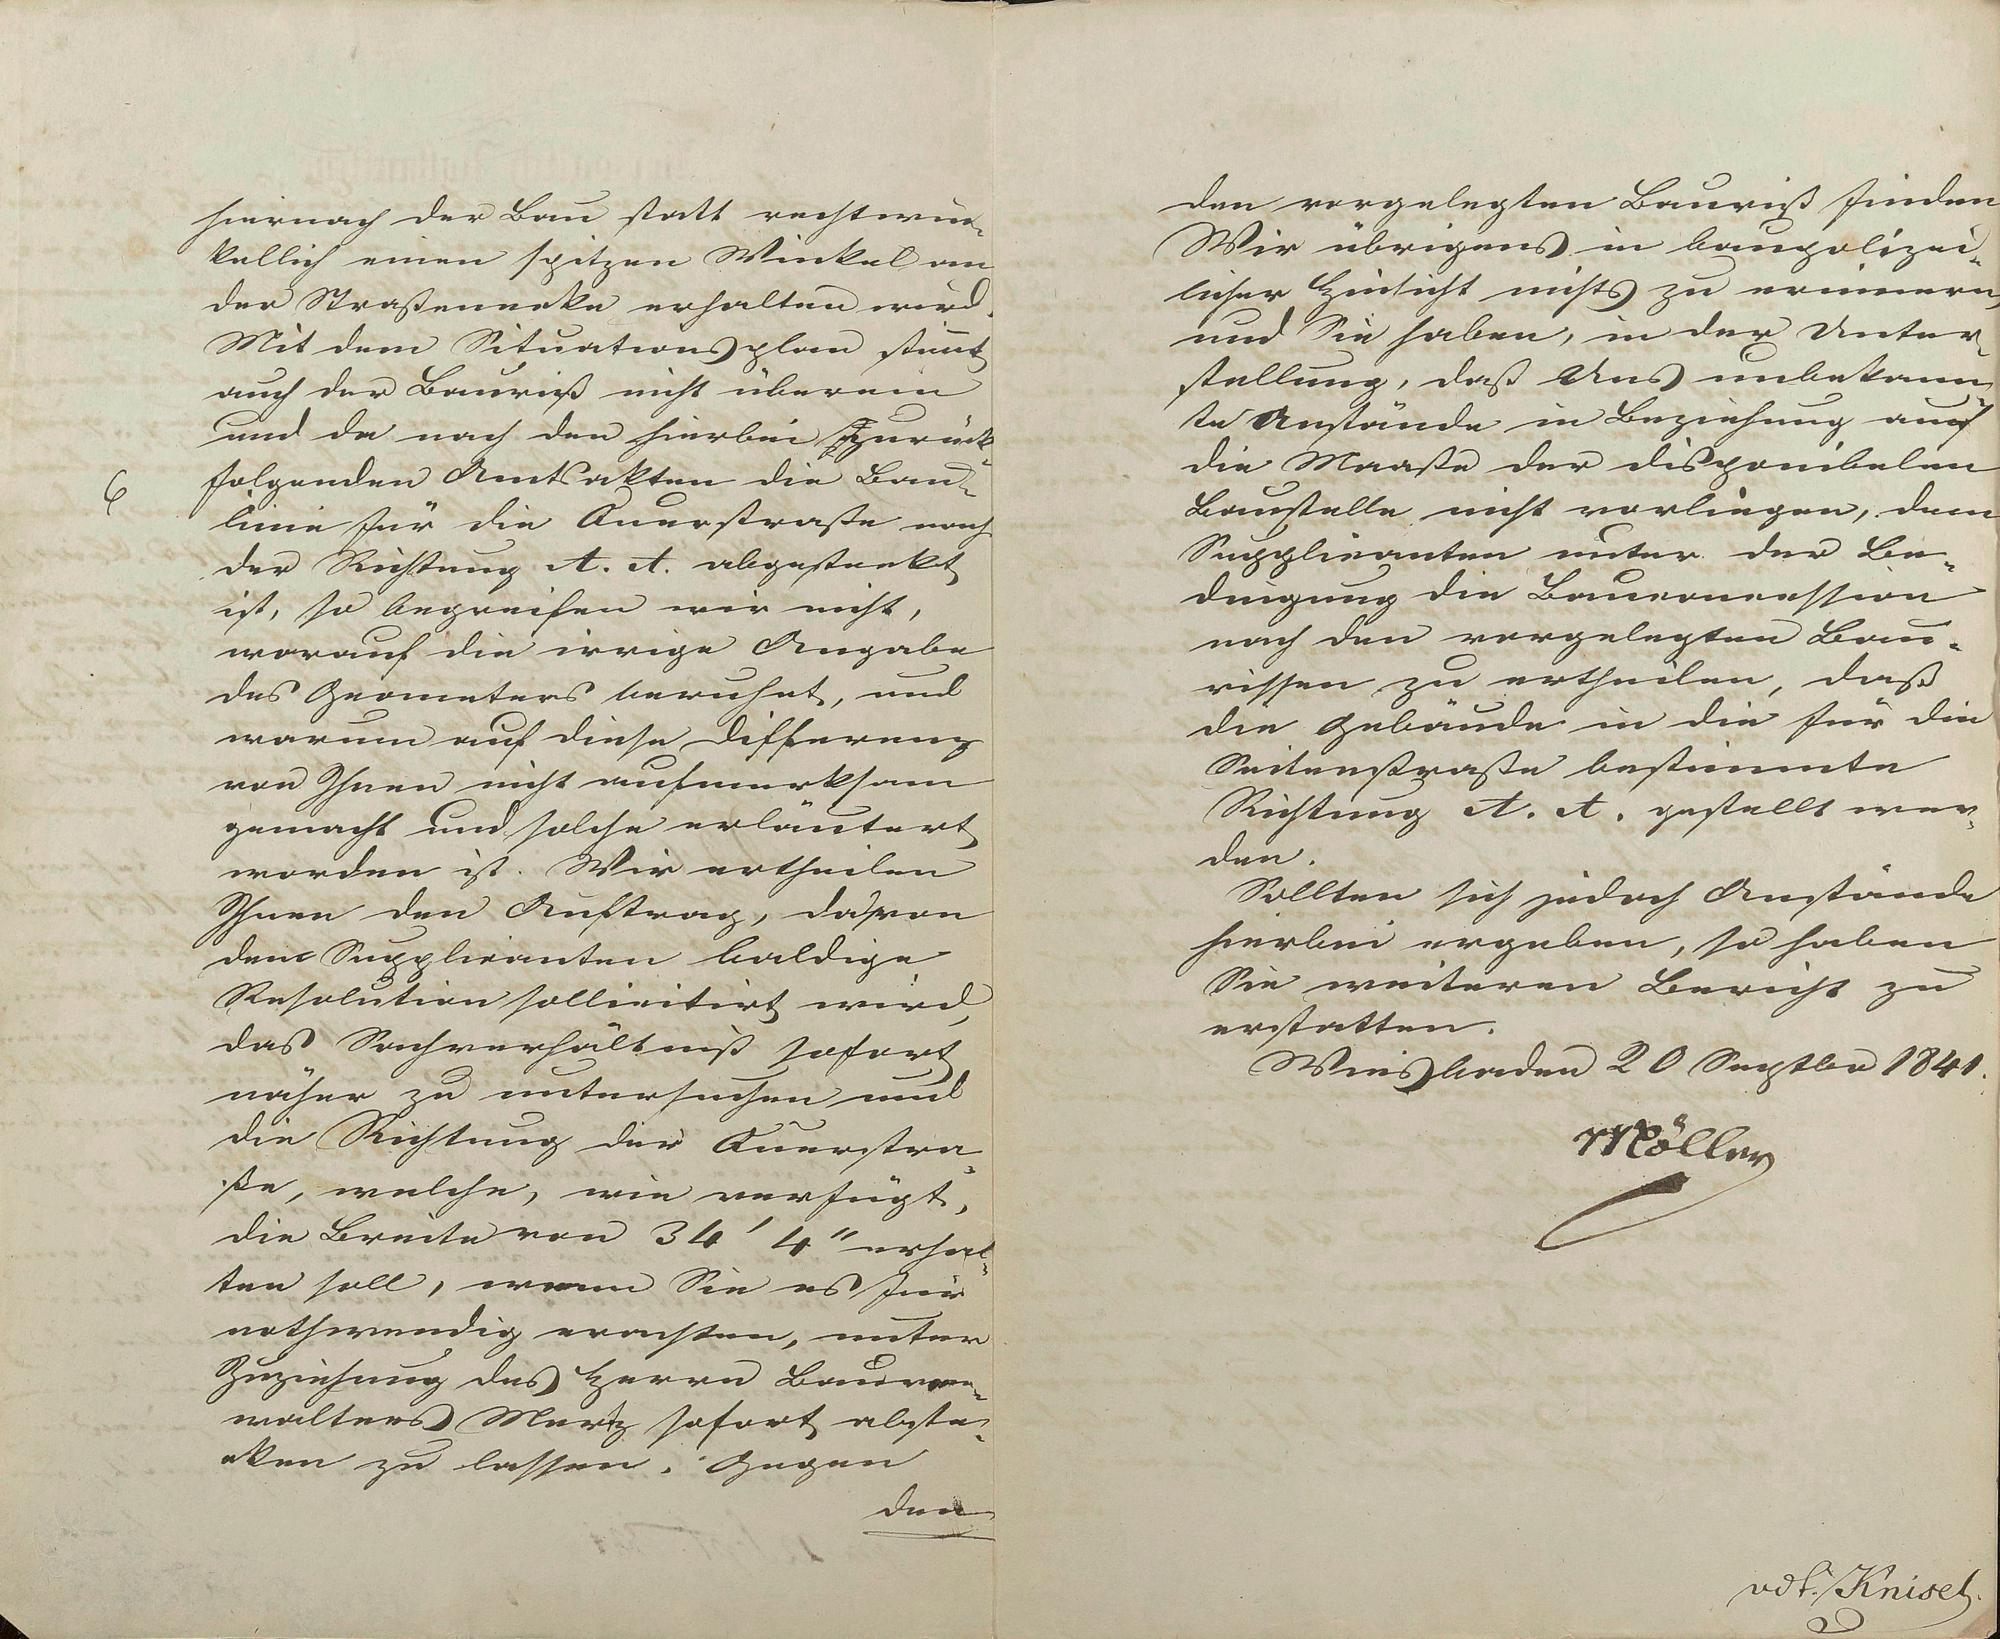 hiernach der Bau statt rechtwin-
kellich einen spitzen Winkel an
der Straßenecke erhalten wird.
Mit dem Situationsplan stimt
auch der Bauriß nicht überein
und da nach den hierbei zurück-
folgenden Amtsakten die Bau-
6
linie für die Querstraße nach
der Richtung A. A. abgesteckt
ist, so begreifen wir nicht,
worauf die irrige Angabe
des Geometers beruhet, und
warum auf diese Differenz
von Ihnen nicht aufmerksam
gemacht und solche erläutert
worden ist. Wir ertheilen
Ihnen den Auftrag, da von
dem Supplicanten baldige
Resolution sollicitirt wird,
das Sachverhältniß sofort
näher zu untersuchen und
die Richtung der Querstra-
ße, welche, wie verfügt,
die Breite von 34' 4" erhal-
ten soll, wenn Sie es für
nothwendig erachten, unter
Zuziehung des Herrn Bauver-
walters Mertz sofort abste-
cken zu lassen. Gegen
den
den vorgelegten Bauriß finden
Wir übrigens in baupolizei-
licher Hinsicht nichts zu erinnern,
und Sie haben, in der Unter-
stellung, daß Uns unbekann-
te Anstände in Beziehung auf
die Maaße der disponibelen
Baustelle nicht vorliegen, dem
Supplicanten unter der Be-
dingung die Bauconcession
nach den vorgelegten Bau-
rissen zu ertheilen, daß
die Gebäude in die für die
Seitenstraße bestimmte
Richtung A. A. gestellt wer-
den.
Sollten sich jedoch Anstände
hierbei ergeben, so haben
Sie weiteren Bericht zu
erstatten.
Wiesbaden 20 Septbr 1841.
Möller
vdt. Knisel.